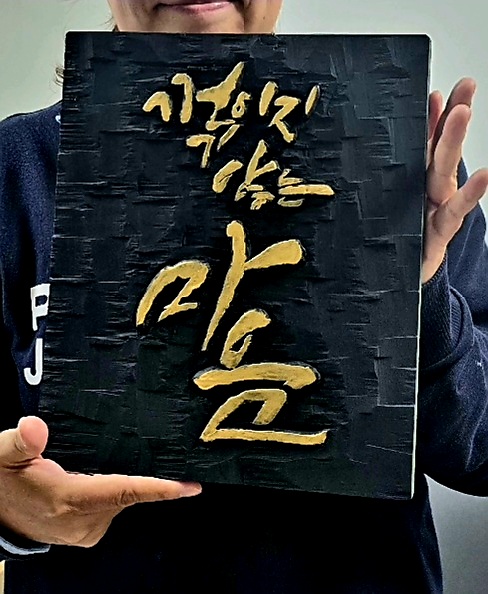 꺾이지
않는
마음